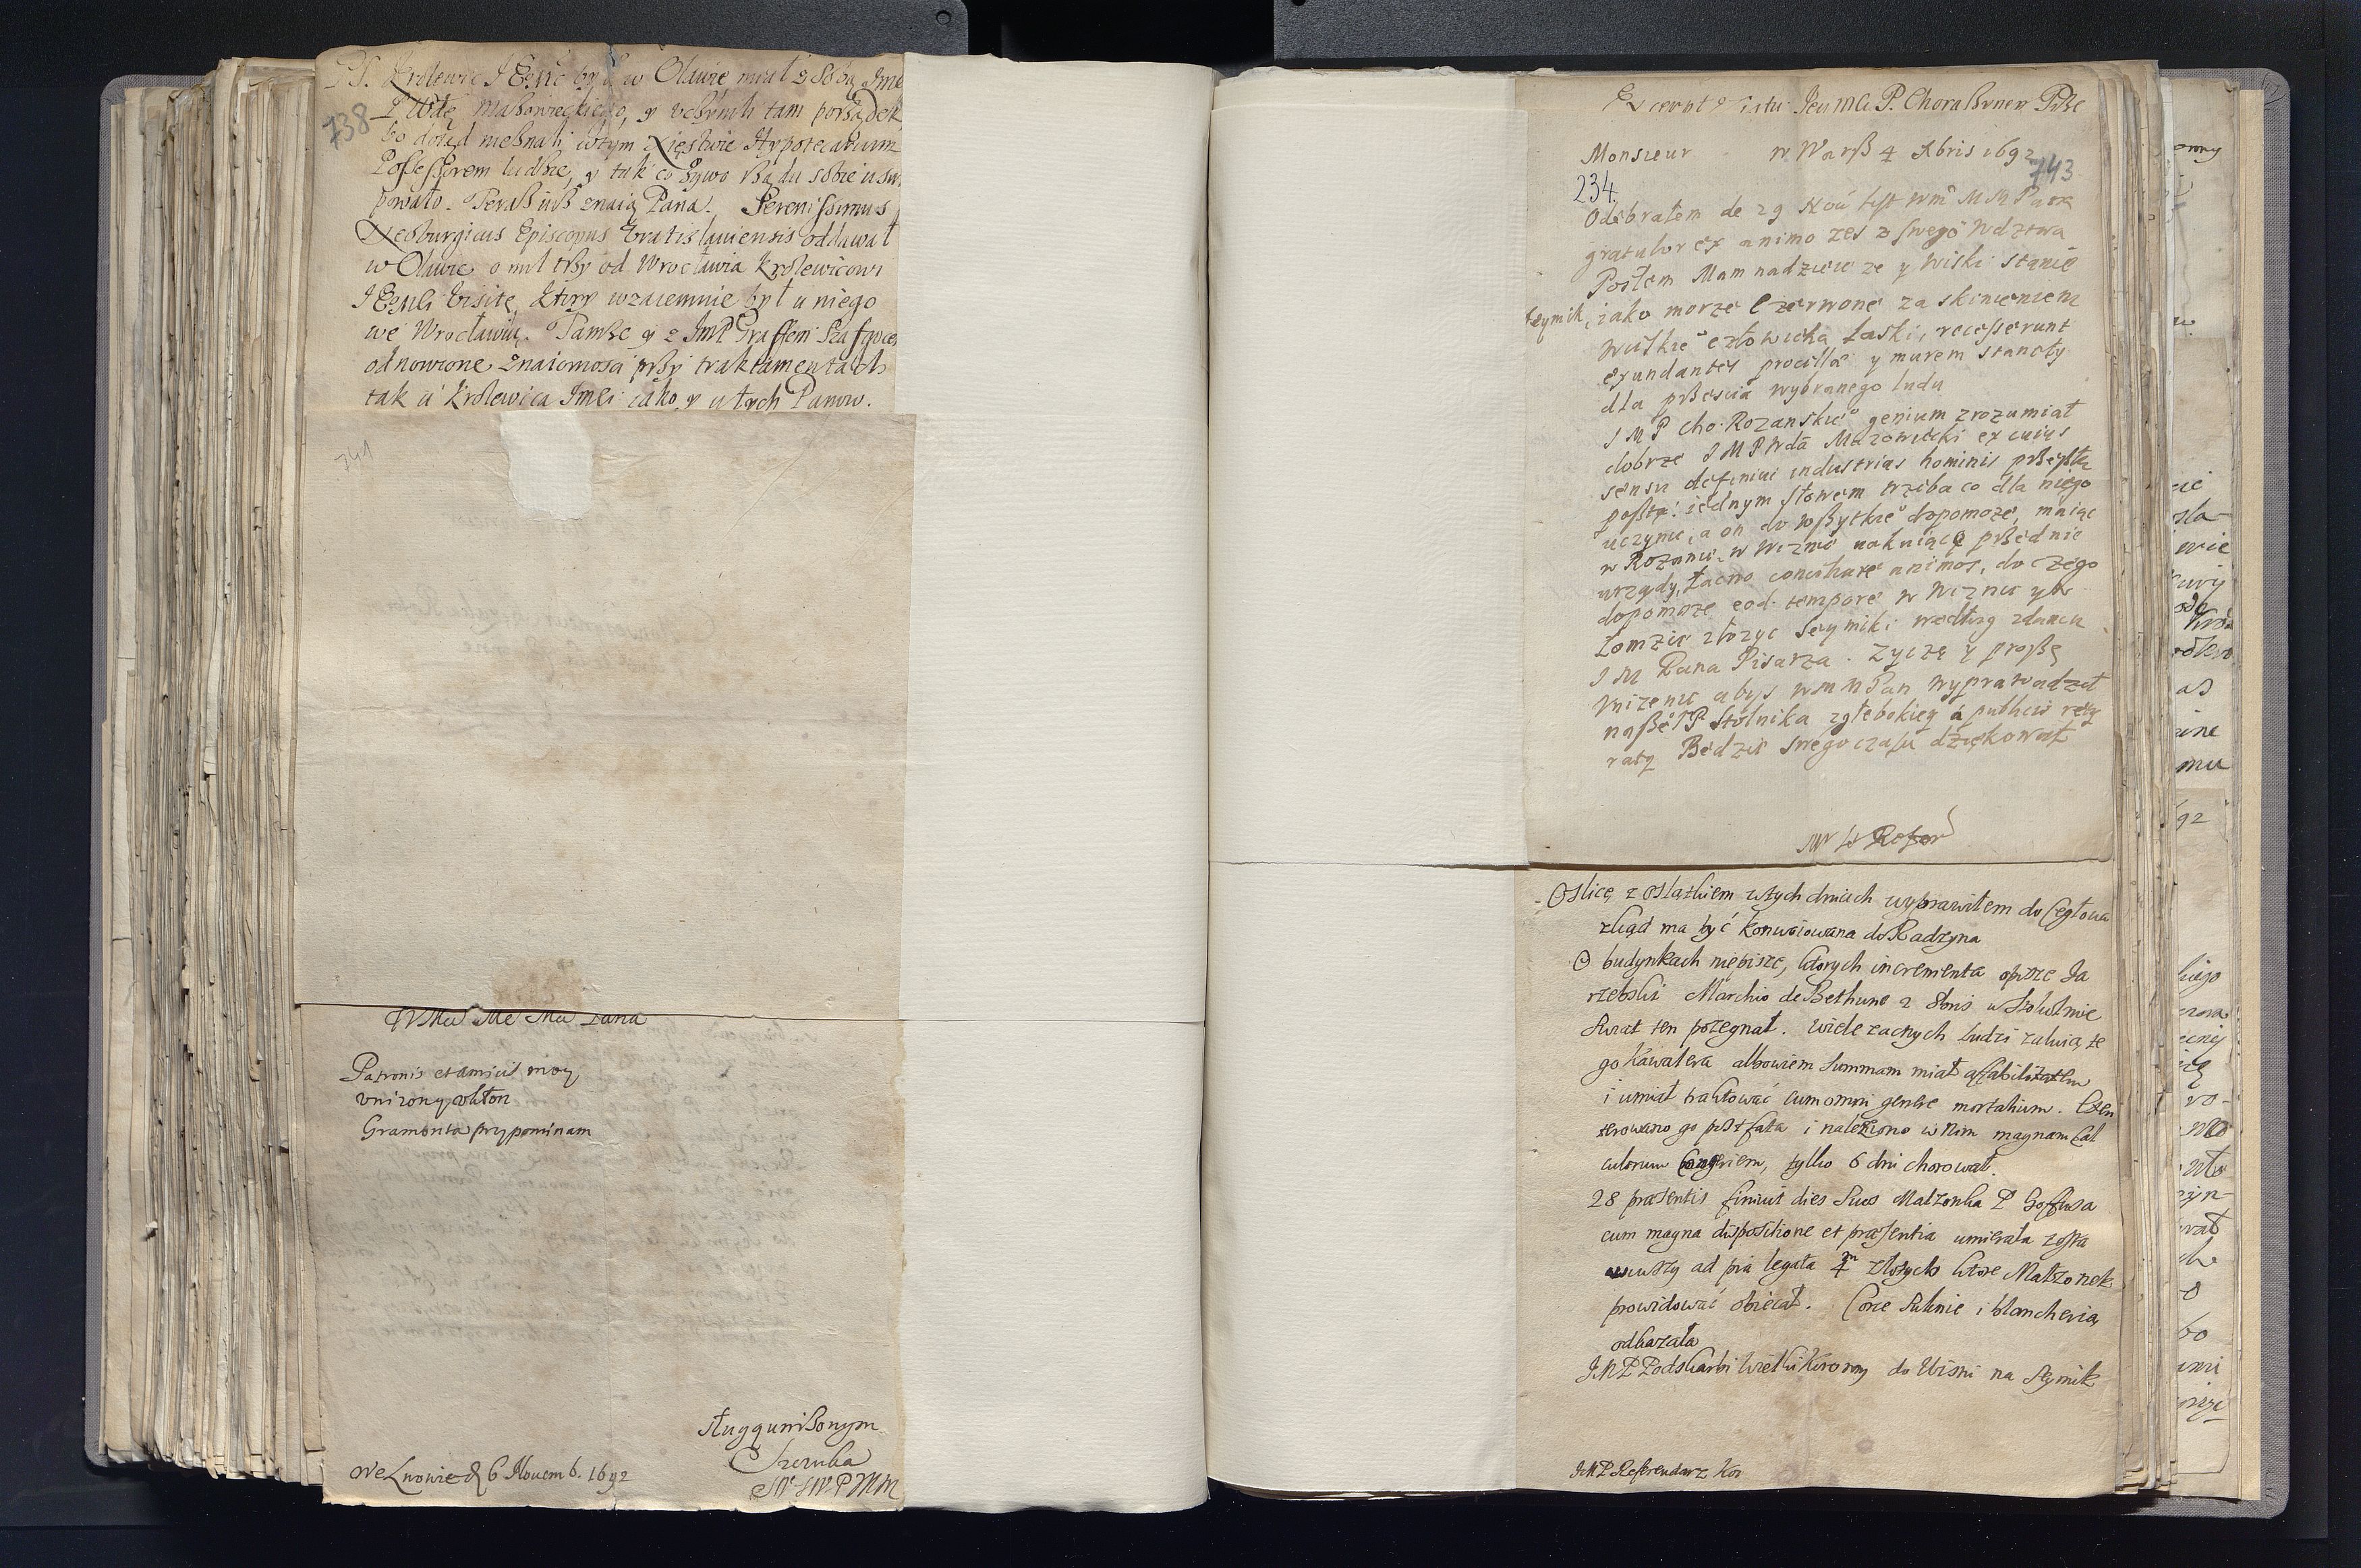 PS. Krolewic JEgmć był w Oławie miał z sobą Jme
738
P Wdę Mazowieckiego, y uczynili tam porządek,
bo dotąd nieznali w tym Xięstwie Hypotecarium
Possessorem ludzie, y tak co żywo rządu sobie usur
powało. Teraz iusz znaią Pana. Serenissimus
Neoburgicus Episcopus Vratislauiensis oddawał
w Oławie o mil trzy od Wrocławia Krolewicowi
JEgmci Visitę, ktory wzaiemnie był u niego
we Wrocławiu. Tamże y z JmP Graffem Szafgocem
odnowione znaiomosci przy traktamentach
tak u Krolewica Jmci iako y u tych Panow.
741
WMci Me Mci Pana
Patronis et amicis moy
unizony ukłon
Gramonta przypominam
sługą unizonym
Szczuka
we Lwowie d 6 Nouemb. 1692
Excerpt z listu JeuMci P. Chorą
Monsieur w Warß 4 Xbris 1692
743
234.
Odebrałem de 29 Nou list wm̃ M M Pana
gratulor ex animo żes z swego wdztwa
Posłem Mam nadzieie ze y Wiski stanie
seymik, iako morze Czerwone za skinieniem
wielkie człowieka Laski, recesserunt
exundantes procellæ y murem stanęły
dla przescia wybranego ludu
J M P Cho: Rozanskie genium zrozumiał
dobrze J M P Wda Mazowiecki ex cuius
sensu definiui industrias hominis
iednym słowem trzeba co dla niego
uczynic, a on do wszytkie dopomoże, maiąc
w Rozaniu, w Wiznie przednie
urzędy, łacno conciliare animos, do czego
dopomoze eod. tempore w Wiznie y w
Łomzie złozyc Seymiki według zdania
J M Pana Pisarza. Zyczę y proszę
unizenie abys WM M Pan wyprowadzał
nasze JP Stolnika zgłebokiey a publico
ratą Będzie swego czasu dziękował
Oslicę z oslątkiem w tych dniach wyprawiłem do Cegłowa
zkąd ma być konwoiowana do Radzyna
O budynkach niepiszę, ktorych incrementa opisze Ja
rzebski Marchio de Bethune 2 8bris w Stokolmie
swiat ten pozegnał. Wiele zacnych ludzi załuią te
go Kawalera albowiem summam miał affabilitatem
i umiał traktować cum omni genere mortalium. Exen
terowano go post fata i naleziono w nim magnam cal
culorum congeriem, tylko 6 dni chorował.
28 præsentis finiuit dies suos Małzonka P
cum magna dispositione et præsentia umierała zosta
wiwszy ad pia legata 4m złotych ktore Małzonek
prowidować obiecał. Corce suknie i blancheria
odkazała
JMP Podskarbi Wielki Koronny do Wisni na Seymik
JMP Referendarz Kor